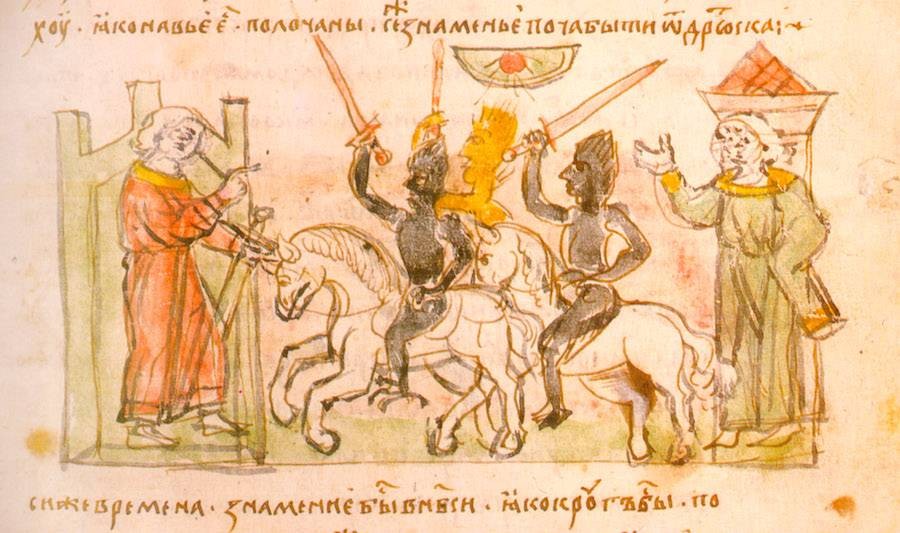 хоу · ꙗко навье е҃ · полочаны · се ж знаменье поча быти ѿ дрютьска:~
си же времена · знамение бы в нб҃си · ꙗко кругъ бы · по